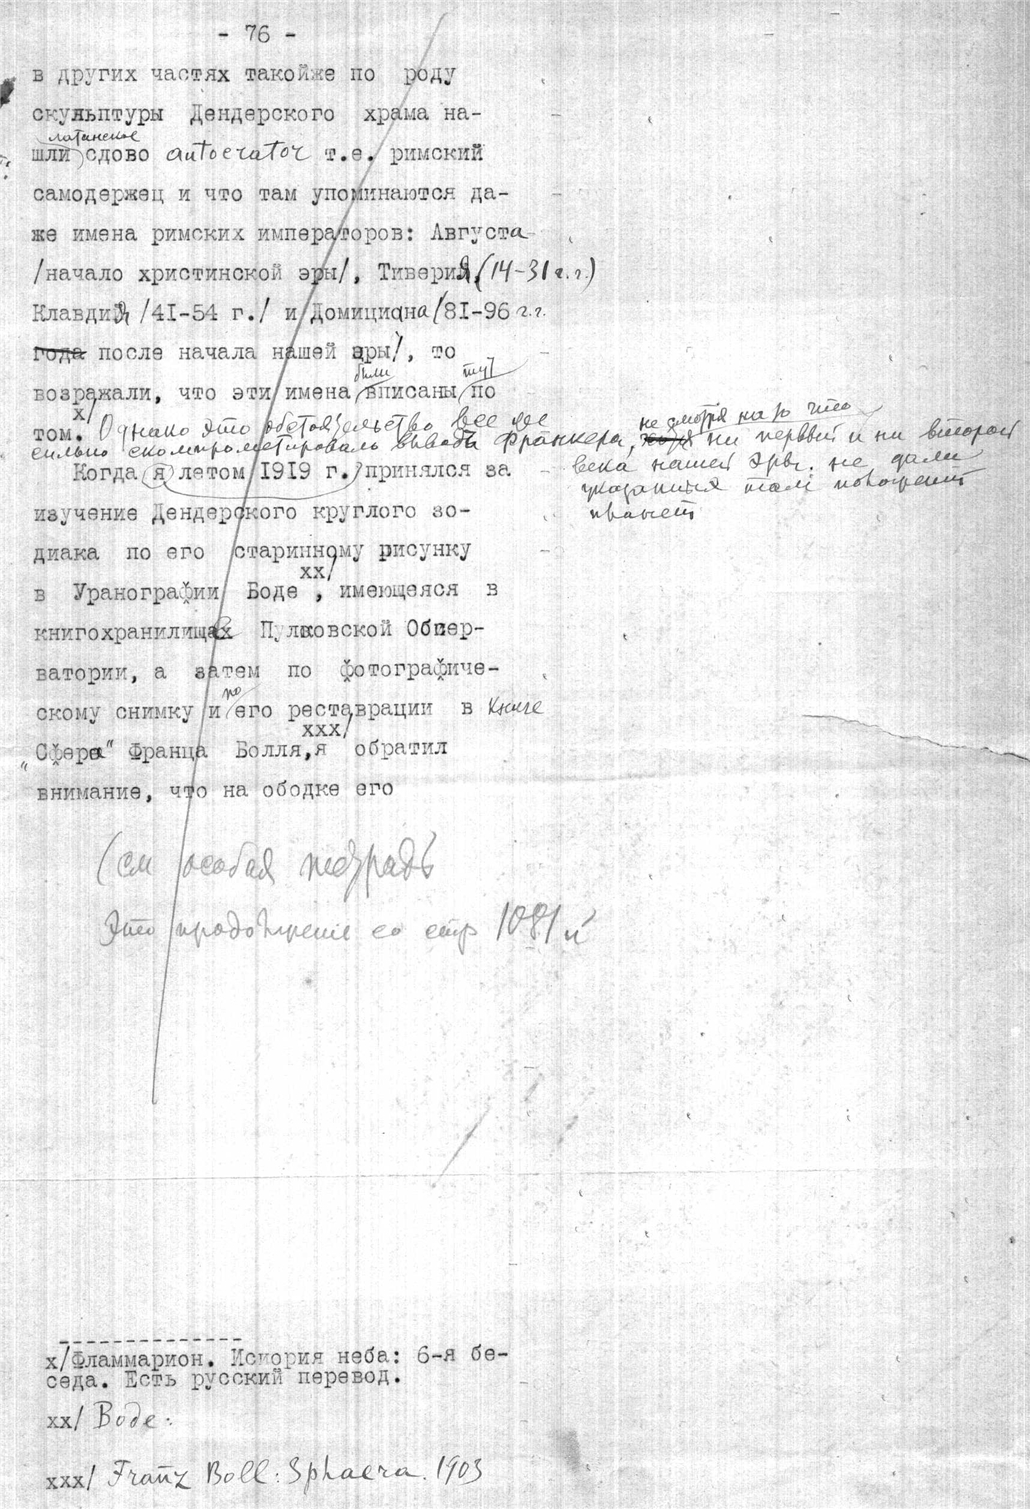 - 76 -
в других частях такойже по роду
скульптуры Дендерского храма на-
латинское
шли слово autocrator т.е. римский
самодержец и что там упоминаются да-
же имена римских императоров: Августа
/начало христинской эры/, Тиверия, (14-31 г.г.)
Клавдия /41-54 г./ и Домициана /81-96 г.г.
года после начала нашей эры/, то
были тут
возражали, что эти имена вписаны по
х/
том. Однако это обстоятельство все же
не смотря на то что
сильно скомпрометировало выводы Франкера, ни первый и ни второй
века нашей эры не дали
указанных там положений
планет
Когда я летом 1919 г. принялся за
изучение Дендерского круглого зо-
диака по его старинному рисунку
хх/
в Уранографии Боде, имеющейся в
книгохранилищах Пулковской Обсер-
ватории, а затем по фотографиче-
по
скому снимку и его реставрации в книге
ххх/
"Сфера" Франца Болля, я обратил
внимание, что на ободке его
(см особая тетрадь
Это продолжение со стр 1081 й
х/Фламмарион. История неба: 6-я бе-
седа. Есть русский перевод.
хх/ Bode.
ххх/ Franz Boll: Sphaera. 1903